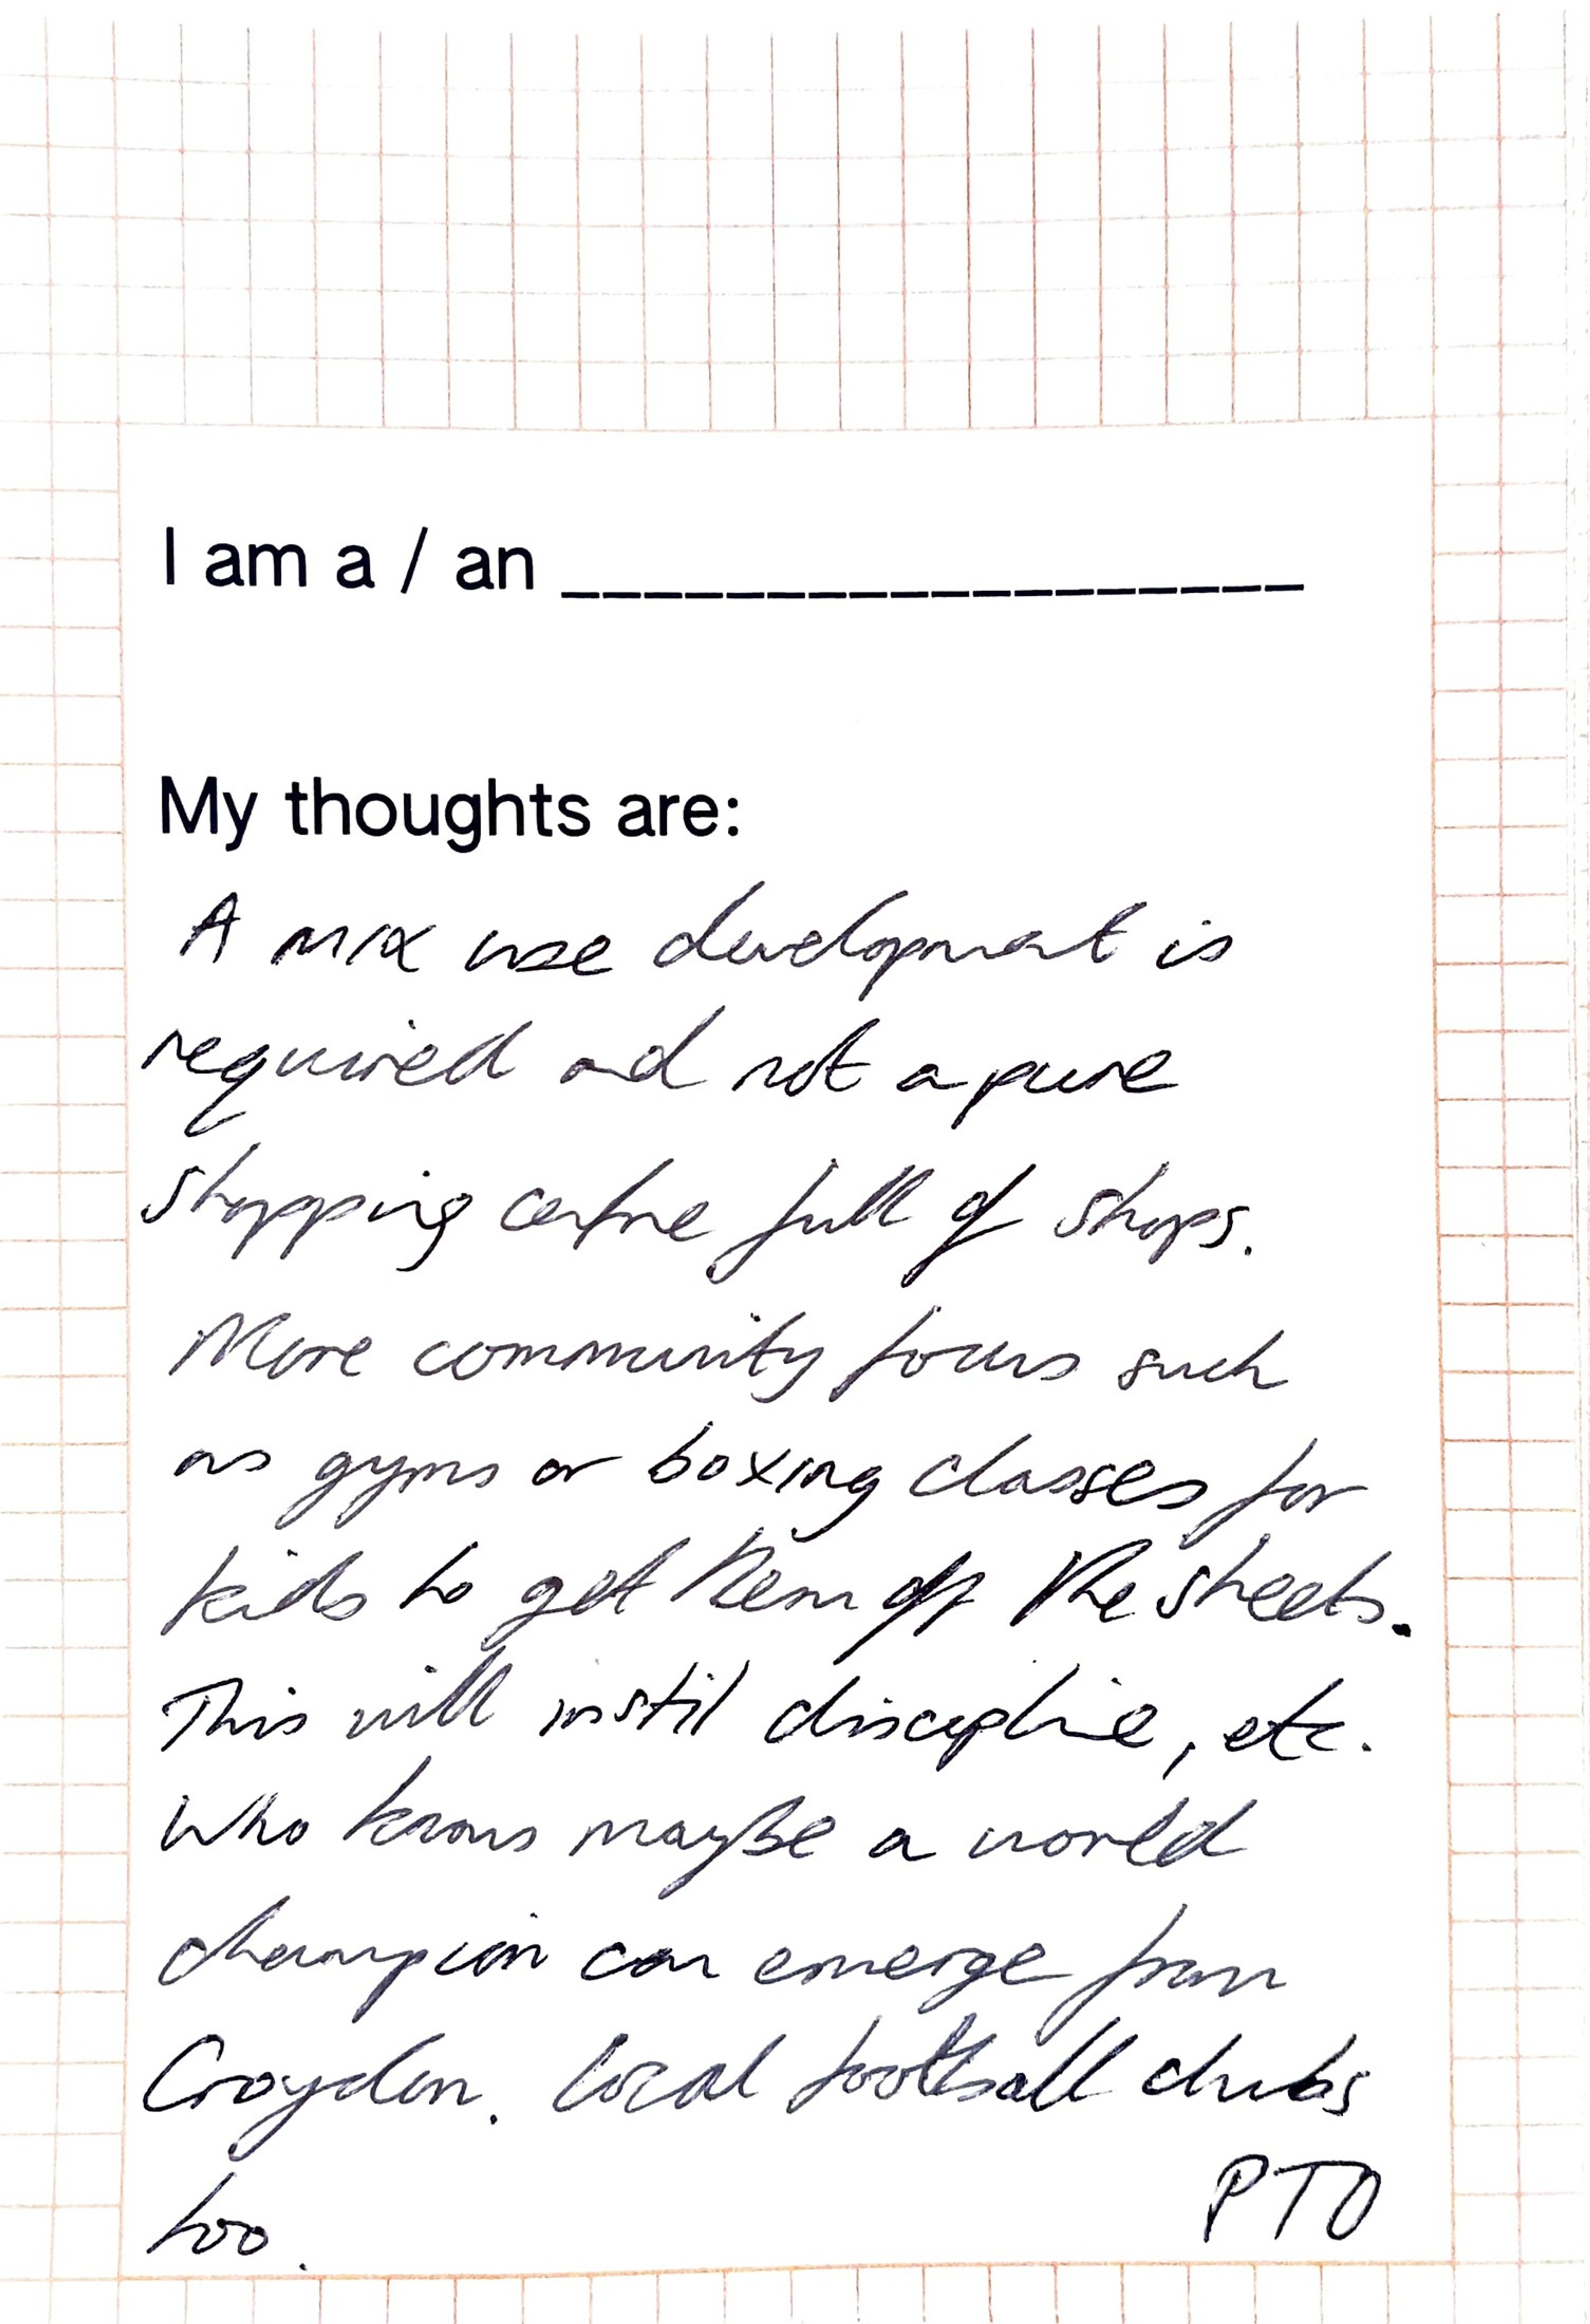 I am a / an __________________
My thoughts are:
A mix use development is
required and not a pure
shopping centre full of shops.
More community focus such
as gyms or boxing classes for
kids to get them off the streets.
This will instil discipline, etc.
Who knows maybe a world
champion can emerge from
Croydon. Local football clubs
too.
PTO